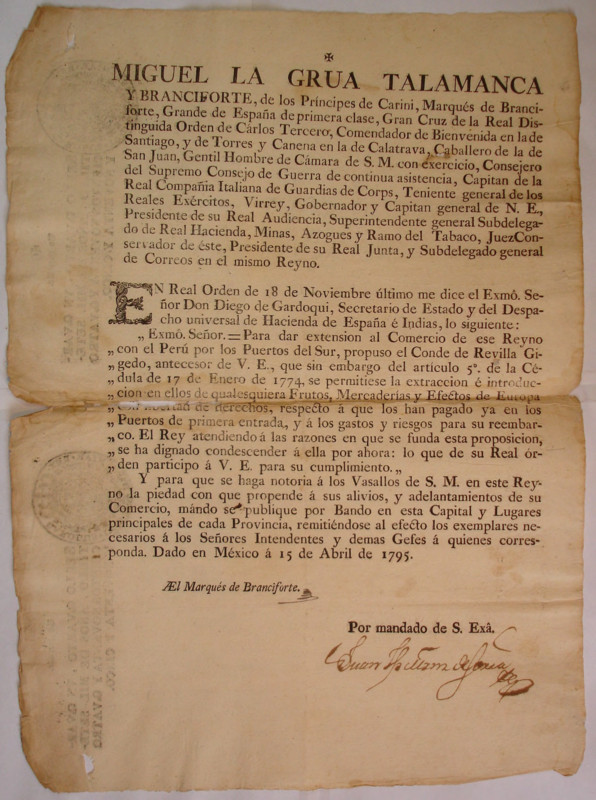 ✠
MIGUEL LA GRUA TALAMANCA
Y BRANCIFORTE, de los Príncipes de Carini, Marqués de Branci-
forte, Grande de España de primera clase, Gran Cruz de la Real Dis-
tinguida Orden de Cárlos Tercero, Comendador de Bienvenida en la de
Santiago, y de Torres y Canena en la de Calatrava, Caballero de la de
San Juan, Gentil Hombre de Cámara de S. M. con exercicio, Consejero
del Supremo Consejo de Guerra de continua asistencia, Capitan de la
Real Compañia Italiana de Guardias de Corps, Teniente general de los
Reales Exércitos, Virrey, Gobernador y Capitan general de N. E.,
Presidente de su Real Audiencia, Superintendente general Subdelega-
do de Real Hacienda, Minas, Azogues y Ramo del Tabaco, Juez Con-
servador de éste, Presidente de su Real Junta, y Subdelegado general
de Correos en el mismo Reyno.
EN Real Orden de 18 de Noviembre último me dice el Exmô. Se-
ñor Don Diego de Gardoqui, Secretario de Estado y del Despa-
cho universal de Hacienda de España é Indias, lo siguiente:
„ Exmô. Señor. = Para dar extension al Comercio de ese Reyno
„ con el Perú por los Puertos del Sur, propuso el Conde de Revilla Gi-
„ gedo, antecesor de V. E., que sin embargo del artículo 5º. de la Cé-
„ dula de 17 de Enero de 1774, se permitiese la extraccion é introduc-
„ cion en ellos de qualesquiera Frutos, Mercaderías y Efectos de Europa
„ con libertad de derechos, respecto á que los han pagado ya en los
„ Puertos de primera entrada, y á los gastos y riesgos para su reembar-
„ co. El Rey atendiendo á las razones en que se funda esta proposicion,
„ se ha dignado condescender á ella por ahora: lo que de su Real ór-
„ den participo á V. E. para su cumplimiento. „
Y para que se haga notoria á los Vasallos de S. M. en este Rey-
no la piedad con que propende á sus alivios, y adelantamientos de su
Comercio, mándo se publique por Bando en esta Capital y Lugares
principales de cada Provincia, remitiéndose al efecto los exemplares ne-
cesarios á los Señores Intendentes y demas Gefes á quienes corres-
ponda. Dado en México á 15 de Abril de 1795.
Æl Marqués de Branciforte.
Por mandado de S. Exâ.